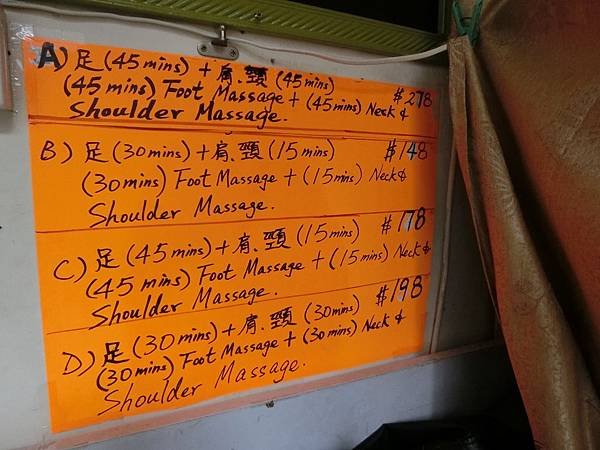 A) 足 (45 mins) + 肩、頸 (45 mins)
(45 mins) Foot Massage + (45 mins) Neck & $278
Shoulder Massage.
B) 足 (30 mins) + 肩、頸 (15 mins) $148
(30 mins) Foot Massage + (15 mins) Neck &
Shoulder Massage.
C) 足 (45 mins) + 肩、頸 (15 mins) $178
(45 mins) Foot Massage + (15 mins) Neck &
Shoulder Massage.
D) 足 (30 mins) + 肩、頸 (30 mins) $198
(30 mins) Foot Massage + (30 mins) Neck &
Shoulder Massage.